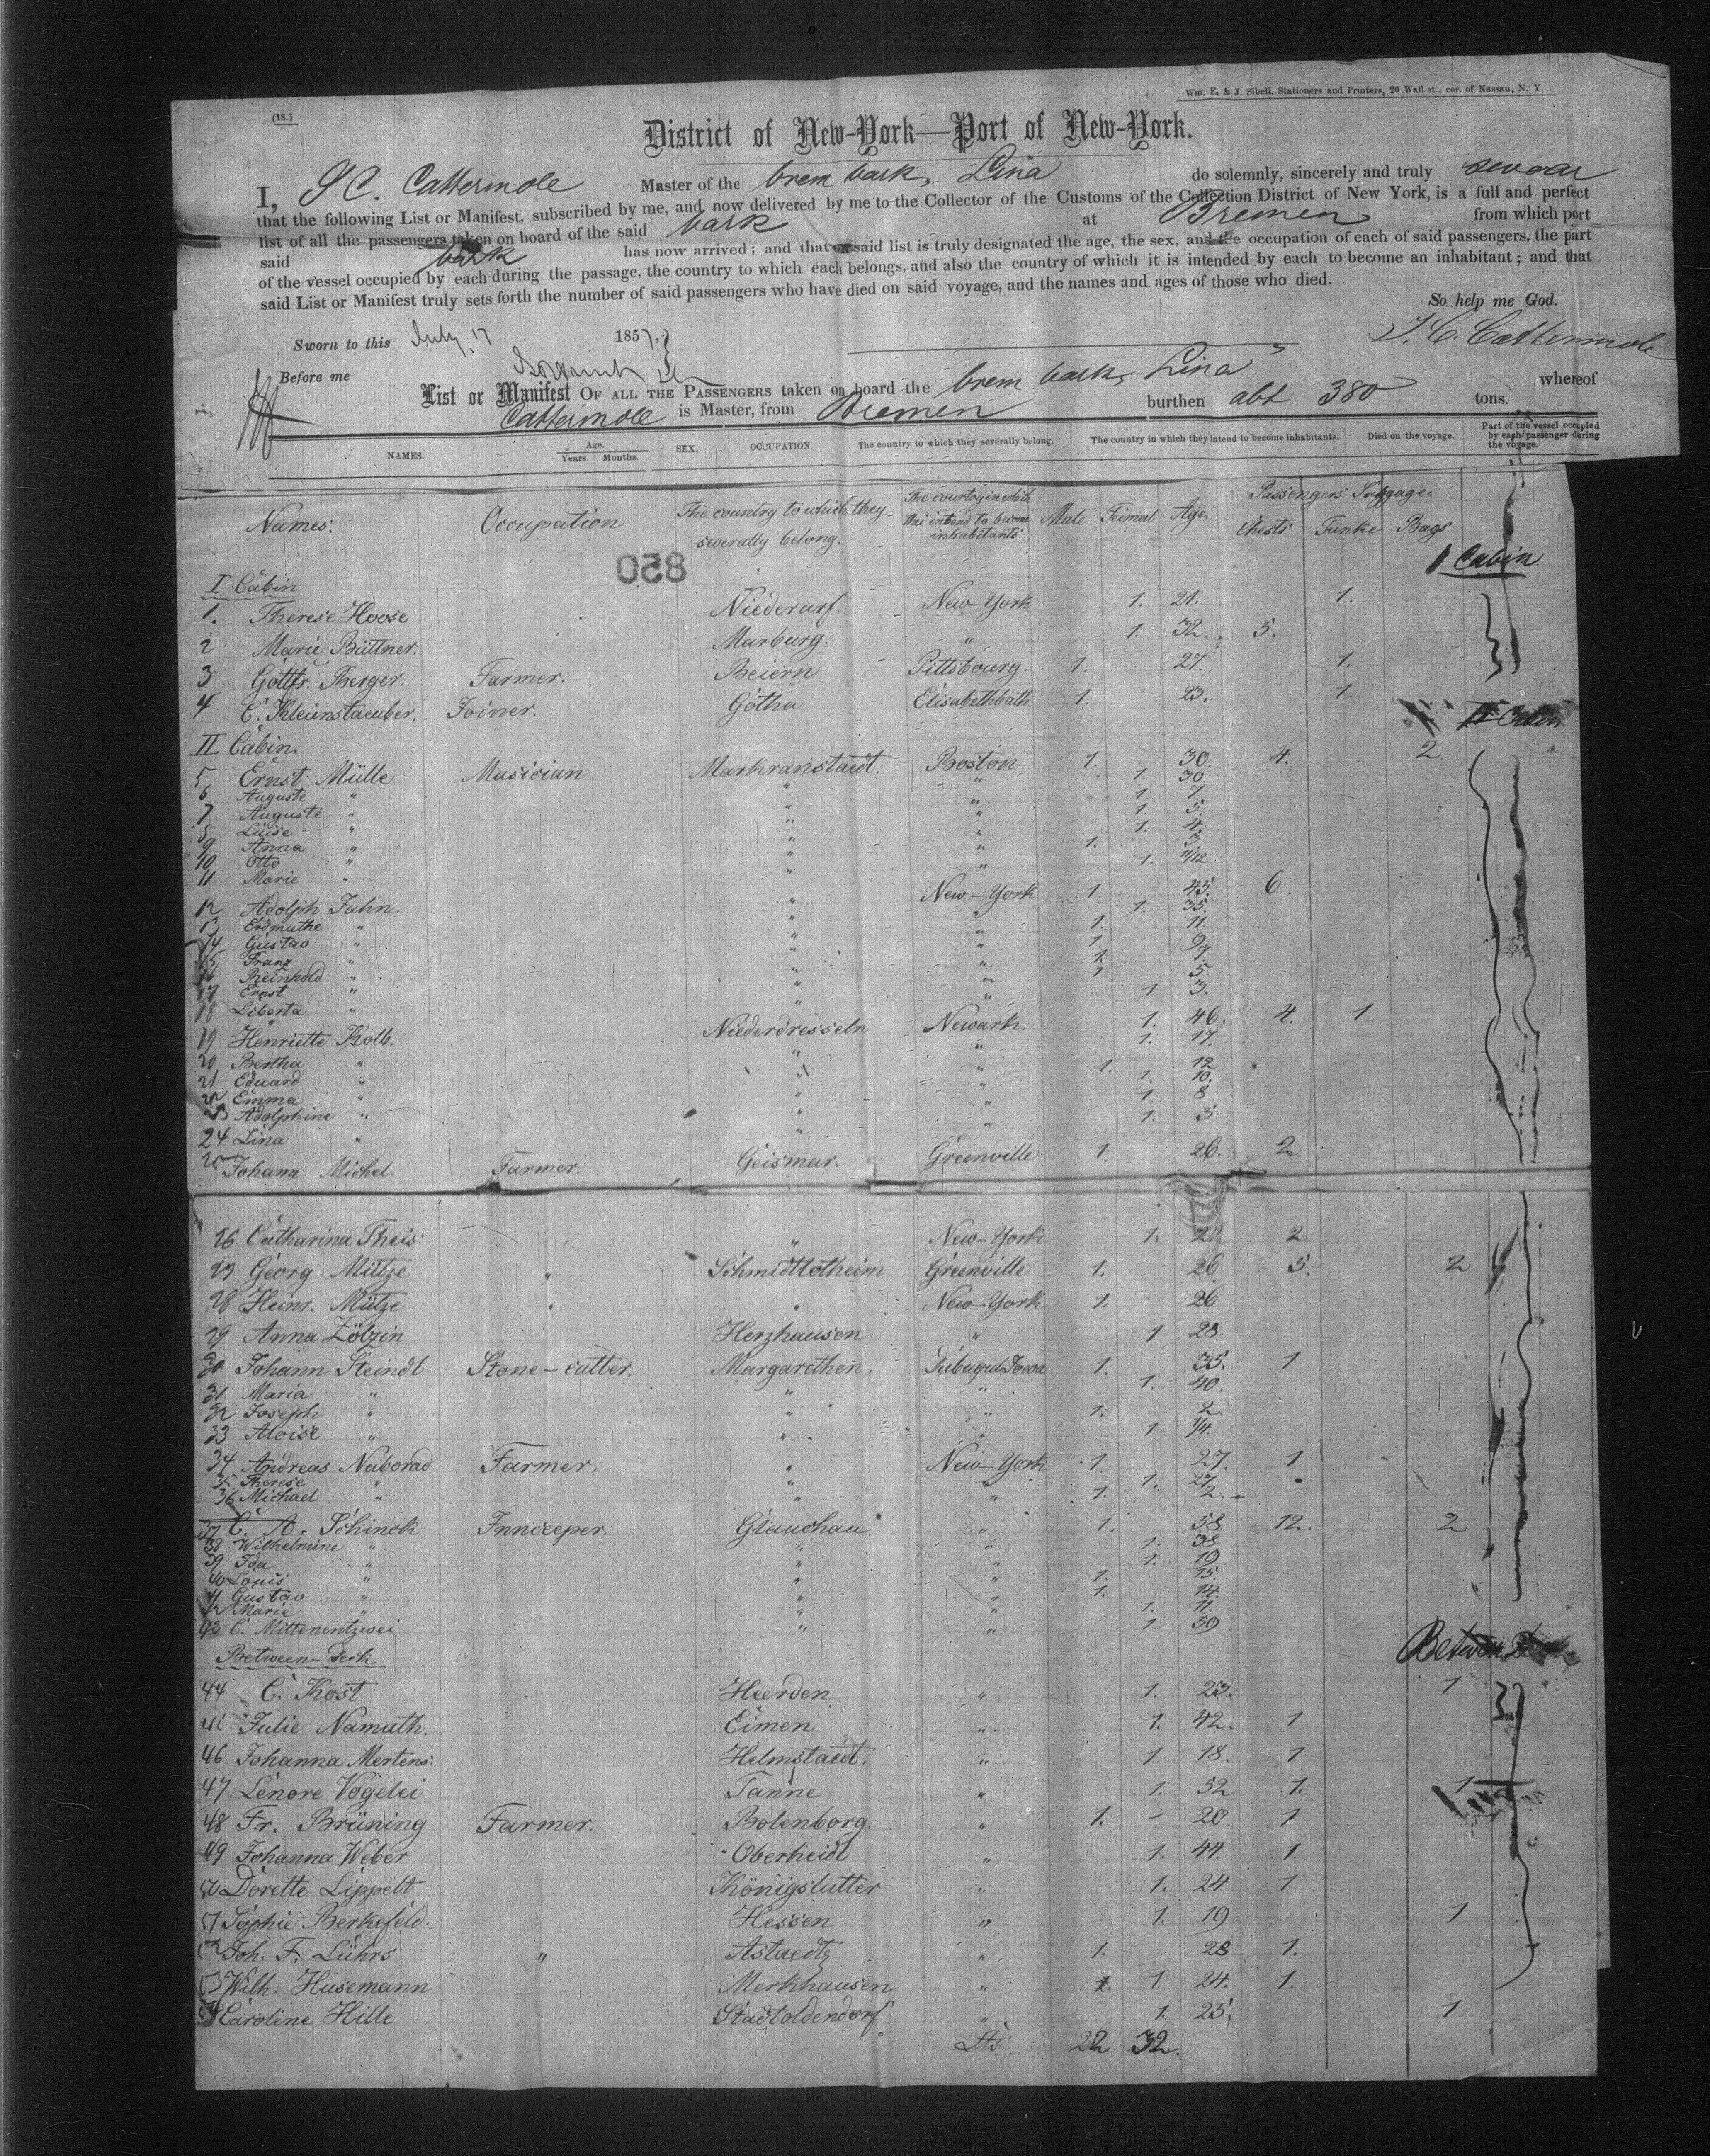 Wm. E. & J. Sibell, Stationers and Printers, 20 Wall-st., cor. of Nassau, N. Y.
(18.)
District of New-York—Port of New-York.
I, J C. Cattermole Master of the brem bark, Lina do solemnly, sincerely and truly swear
that the following List or Manifest, subscribed by me, and now delivered by me to the Collector of the Customs of the Collection District of New York, is a full and perfect
list of all the passengers taken on board of the said bark at Bremen from which port
said bark has now arrived; and that on said list is truly designated the age, the sex, and the occupation of each of said passengers, the part
of the vessel occupied by each during the passage, the country to which each belongs, and also the country of which it is intended by each to become an inhabitant; and that
said List or Manifest truly sets forth the number of said passengers who have died on said voyage, and the names and ages of those who died.
So help me God.
Sworn to this July 17 1857. J. C. Cattermole
Before me
List or Manifest OF ALL THE PASSENGERS taken on board the brem bark, Lina whereof
Cattermole is Master, from Bremen burthen abt 380 tons.
NAMES. Age. Years. Months. SEX. OCCUPATION The country to which they severally belong. The country in which they intend to become inhabitants. Died on the voyage. Part of the vessel occupied by each passenger during the voyage.
Names: Occupation The country to which they severally belong. The country in which they intend to become inhabitants Male Feimeal Age. Passengers Luggage: Chests Trunke Bags
850
I Cabin 1 Cabin
1. Therese Hoose Niederurf New-York 1. 21. 1.
2 Marie Büttner. Marburg. " 1. 32. 5.
3 Gottfr. Berger. Farmer. Beiern Pittsbourg. 1. 27. 1.
4 C. Kleinstaeuber. Joiner. Gotha Elisabethbath 1. 23. 1
II Cabin. II Cabin
5 Ernst Mülle Musician Markranstaedt. Boston 1. 30. 4. 2
6 Auguste " " " 1. 30
7 Auguste " " " 1. 7.
8 Luise " " " 1. 5.
9 Anna " " " 1. 4.
10 Otto " " " 1. 3
11 Marie " " " 1. 11/12
12 Adolph Jahn. " New-York 1. 45. 6
13 Erdmuthe " " " 1. 35.
14 Gustav " " " 1. 11.
15 Franz " " " 1. 9
16 Reinhold " " " 1. 7.
17 Ernst " " " 1 5
18 Liberta " " " 1 3.
19 Henriette Kolb. Niederdresseln Newark. 1. 46. 4. 1
20 Bertha " " " 1. 17.
21 Eduard " " " 1. 12
22 Emma " " " 1. 10.
23 Adolphine " " " 1. 8
24 Lina " " " 1. 5
25 Johann Michel Farmer. Geismar. Greenville 1. 26. 2
26 Catharina Theis " New-York 1. 2
27 Georg Mütze " Schmidtlotheim Greenville 1. 26 5. 2
28 Heinr. Mütze " " New-York 1. 26
29 Anna Zölzin Herzhausen " 1 28
30 Johann Steindl Stone-cutter. Margarethen. Dubuqul Iowa 1. 35. 1
31 Maria " " " 1. 40.
32 Joseph " " " 1. 2.
33 Aloise " " " 1 1/4.
34 Andreas Naborad Farmer. " New-York 1. 27. 1
35 Therese " " " 1. 27
36 Michael " " " 1. 2.
37 C. A. Schinck Innceeper. Glauchau " 1. 58 12. 2
38 Wilhelmine " " " 1. 38
39 Ida " " " 1. 19.
40 Louis " " " 1. 15.
41 Gustav " " " 1. 14.
42 Marie " " " 1. 11.
43 C. Mittenentzwei " " 1 39
Between-Deck Between Deck
44 C. Kost Heerden " 1. 23. 1
45 Julie Namuth. Eimen " 1. 42. 1
46 Johanna Mertens. Helmstaedt. " 1 18. 1
47 Lenore Vogelei Tanne " 1. 52 1. 1
48 Fr. Brüning Farmer. Bolenborg. " 1. 20 1
49 Johanna Weber Oberheidt " 1. 44. 1.
50 Dorette Lippelt Königslutter " 1. 24 1
51 Sophie Berkefeld. Hessen " 1. 19 1
52 Joh. F. Lührs " Astaedtz " 1. 28 1.
53 Wilh. Husemann Merkhausen " 1. 24. 1.
54 Caroline Hille Stadtoldendorf " 1. 25. 1
22 32.